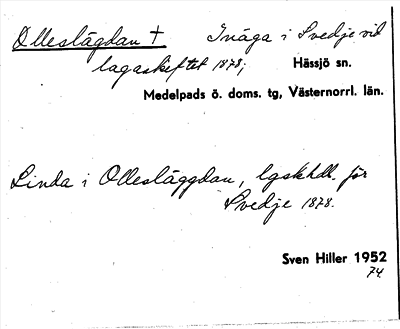 Olleslägdan † Inäga i Svedje vid
lagaskiftet 1878; Hässjö sn.
Medelpads ö. doms. tg, Västernorrl. län.
Linda i Ollesläggdan, lgskhdl. för
Svedje 1878.
Sven Hiller 1952
74